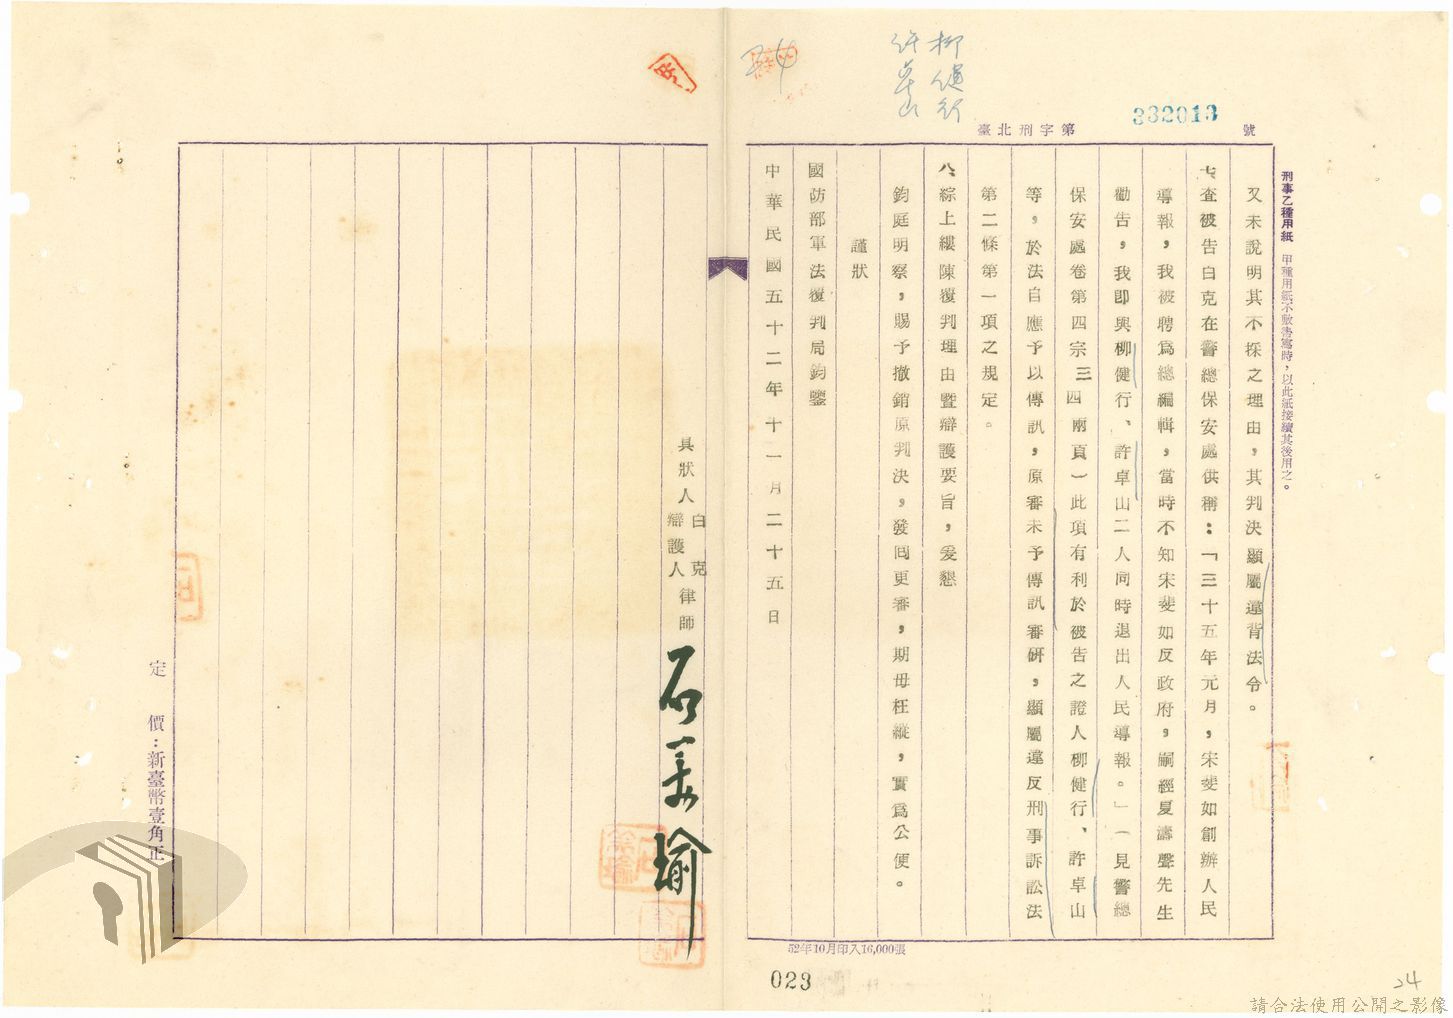 柳健行
許卓山
24
臺北刑字第 332013 號
刑事乙種用紙 甲種用紙不敷書寫時，以此紙接續其後用之。
又未說明其不採之理由，其判決顯屬違背法令。
七、查被告白克在警總保安處供稱：「三十五年元月，宋斐如創辦人民
導報，我被聘爲總編輯，當時不知宋斐如反政府，嗣經夏濤聲先生
勸告，我即與柳健行、許卓山二人同時退出人民導報。」（見警總
保安處卷第四宗三四兩頁）此項有利於被告之證人柳健行、許卓山
等，於法自應予以傳訊，原審未予傳訊審研，顯屬違反刑事訴訟法
第二條第一項之規定。
八、綜上縷陳覆判理由暨辯護要旨，爰懇
鈞庭明察，賜予撤銷原判決，發回更審，期毋枉縱，實爲公便。
謹狀
國防部軍法覆判局鈞鑒
中華民國五十二年十一月二十五日
具狀人 白克
辯護人 律師 石美瑜
定價：新臺幣壹角正
52年10月印入16,000張
023
24
請合法使用公開之影像